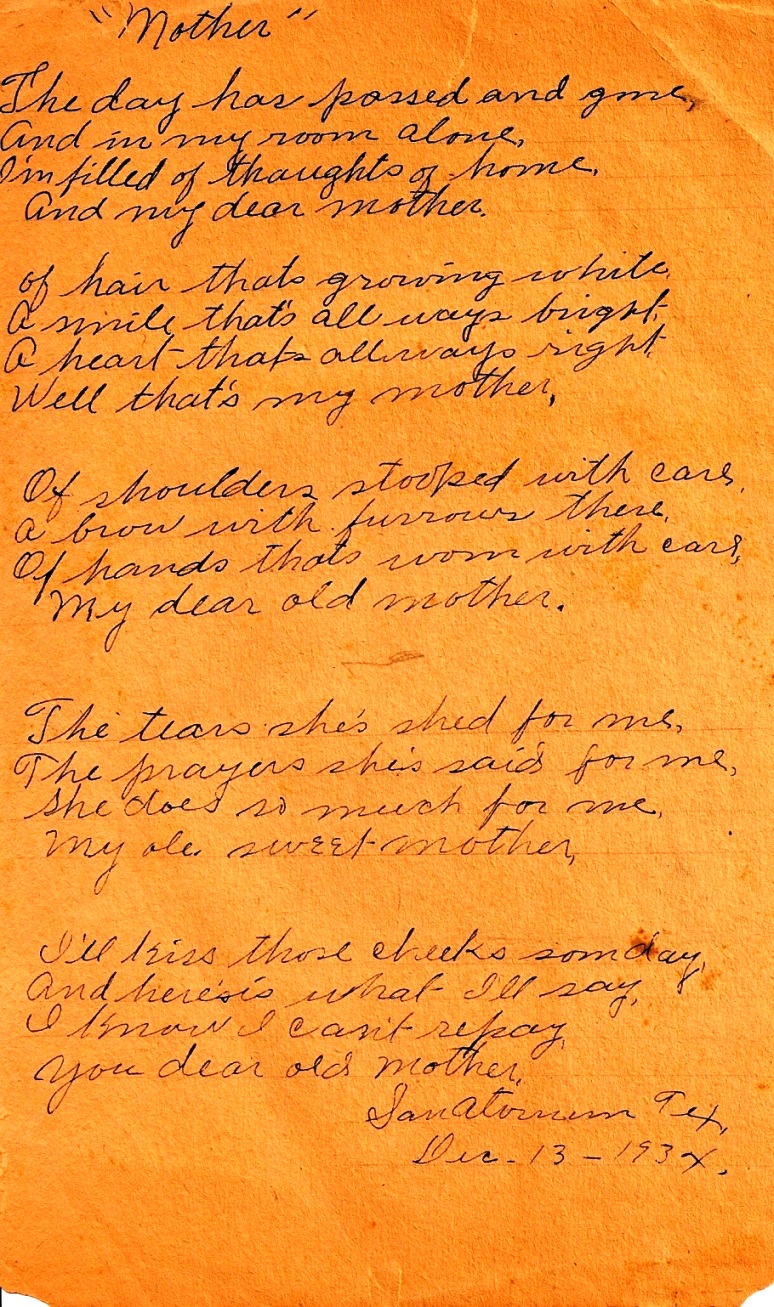 "Mother"
The day has passed and gone,
And in my room alone,
I'm filled of thoughts of home,
And my dear mother.
of hair thats growing white,
A smile that's all ways bright,
A heart thats allways right,
Well that's my mother,
Of shoulders stooped with care,
a brow with furrows there,
Of hands thats worn with care,
My dear old mother.
The tears she's shed for me,
The prayers she's said for me,
She does so much for me,
My ole sweet mother,
I'll kiss those cheeks somday,
And here's is what I'll say,
I know I can't repay,
You dear old mother,
Sanatorium Tex,
Dec. 13 - 193